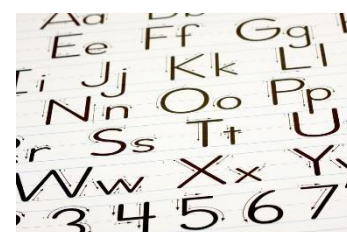 Aa
Ee Ff Gg
Ii Jj Kk Ll
Nn Oo Pp
r Ss Tt U
Ww Xx Yy
3 4 5 6 7